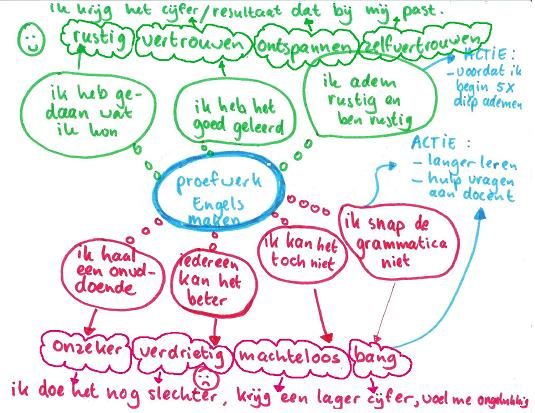 ik krijg het cijfer/resultaat dat bij mij past.
rustig
vertrouwen
ontspannen
zelfvertrouwen
ACTIE :
- voordat ik
begin 5x
diep ademen
ik heb ge-
daan wat
ik kon
ik heb het
goed geleerd
ik adem
rustig en
ben rustig
ACTIE :
- langer leren
- hulp vragen
aan docent
proefwerk
Engels
maken
ik haal
een onvol-
doende
iedereen
kan het
beter
ik kan het
toch niet
ik snap de
grammatica
niet
onzeker
verdrietig
machteloos
bang
ik doe het nog slechter, krijg een lager cijfer, voel me ongelukkig